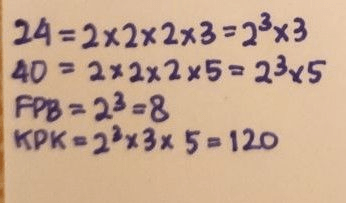 24 = 2×2×2×3 = 2³×3
40 = 2×2×2×5 = 2³×5
FPB = 2³ = 8
KPK = 2³×3×5 = 120